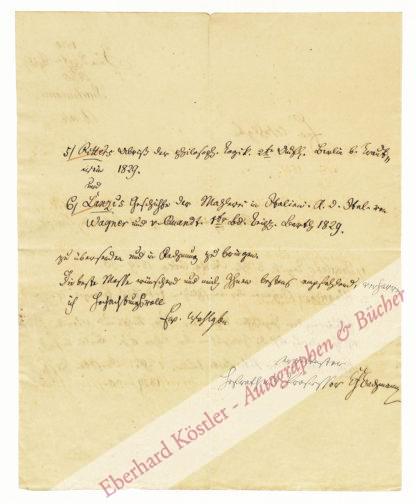 5) Ritters Abriß der philosoph. Logik. 2te Aufl. Berlin b. Traut-
wein 1829.
und
6) Lanzi's Geschichte der Mahlerei in Italien. A. d. Ital. von
Wagner und v. Quandt. 1ter Bd. Leipz. Barth 1829.
zu übersenden und in Rechnung zu bringen.
Die beste Messe wünschend und mich Ihnen bestens empfehlend, verharre
ich hochachtungsvoll
Ew. Wohlgb.
ergebenster
Hofrath Professor
Eberhard Köstler - Autographen & Bücher